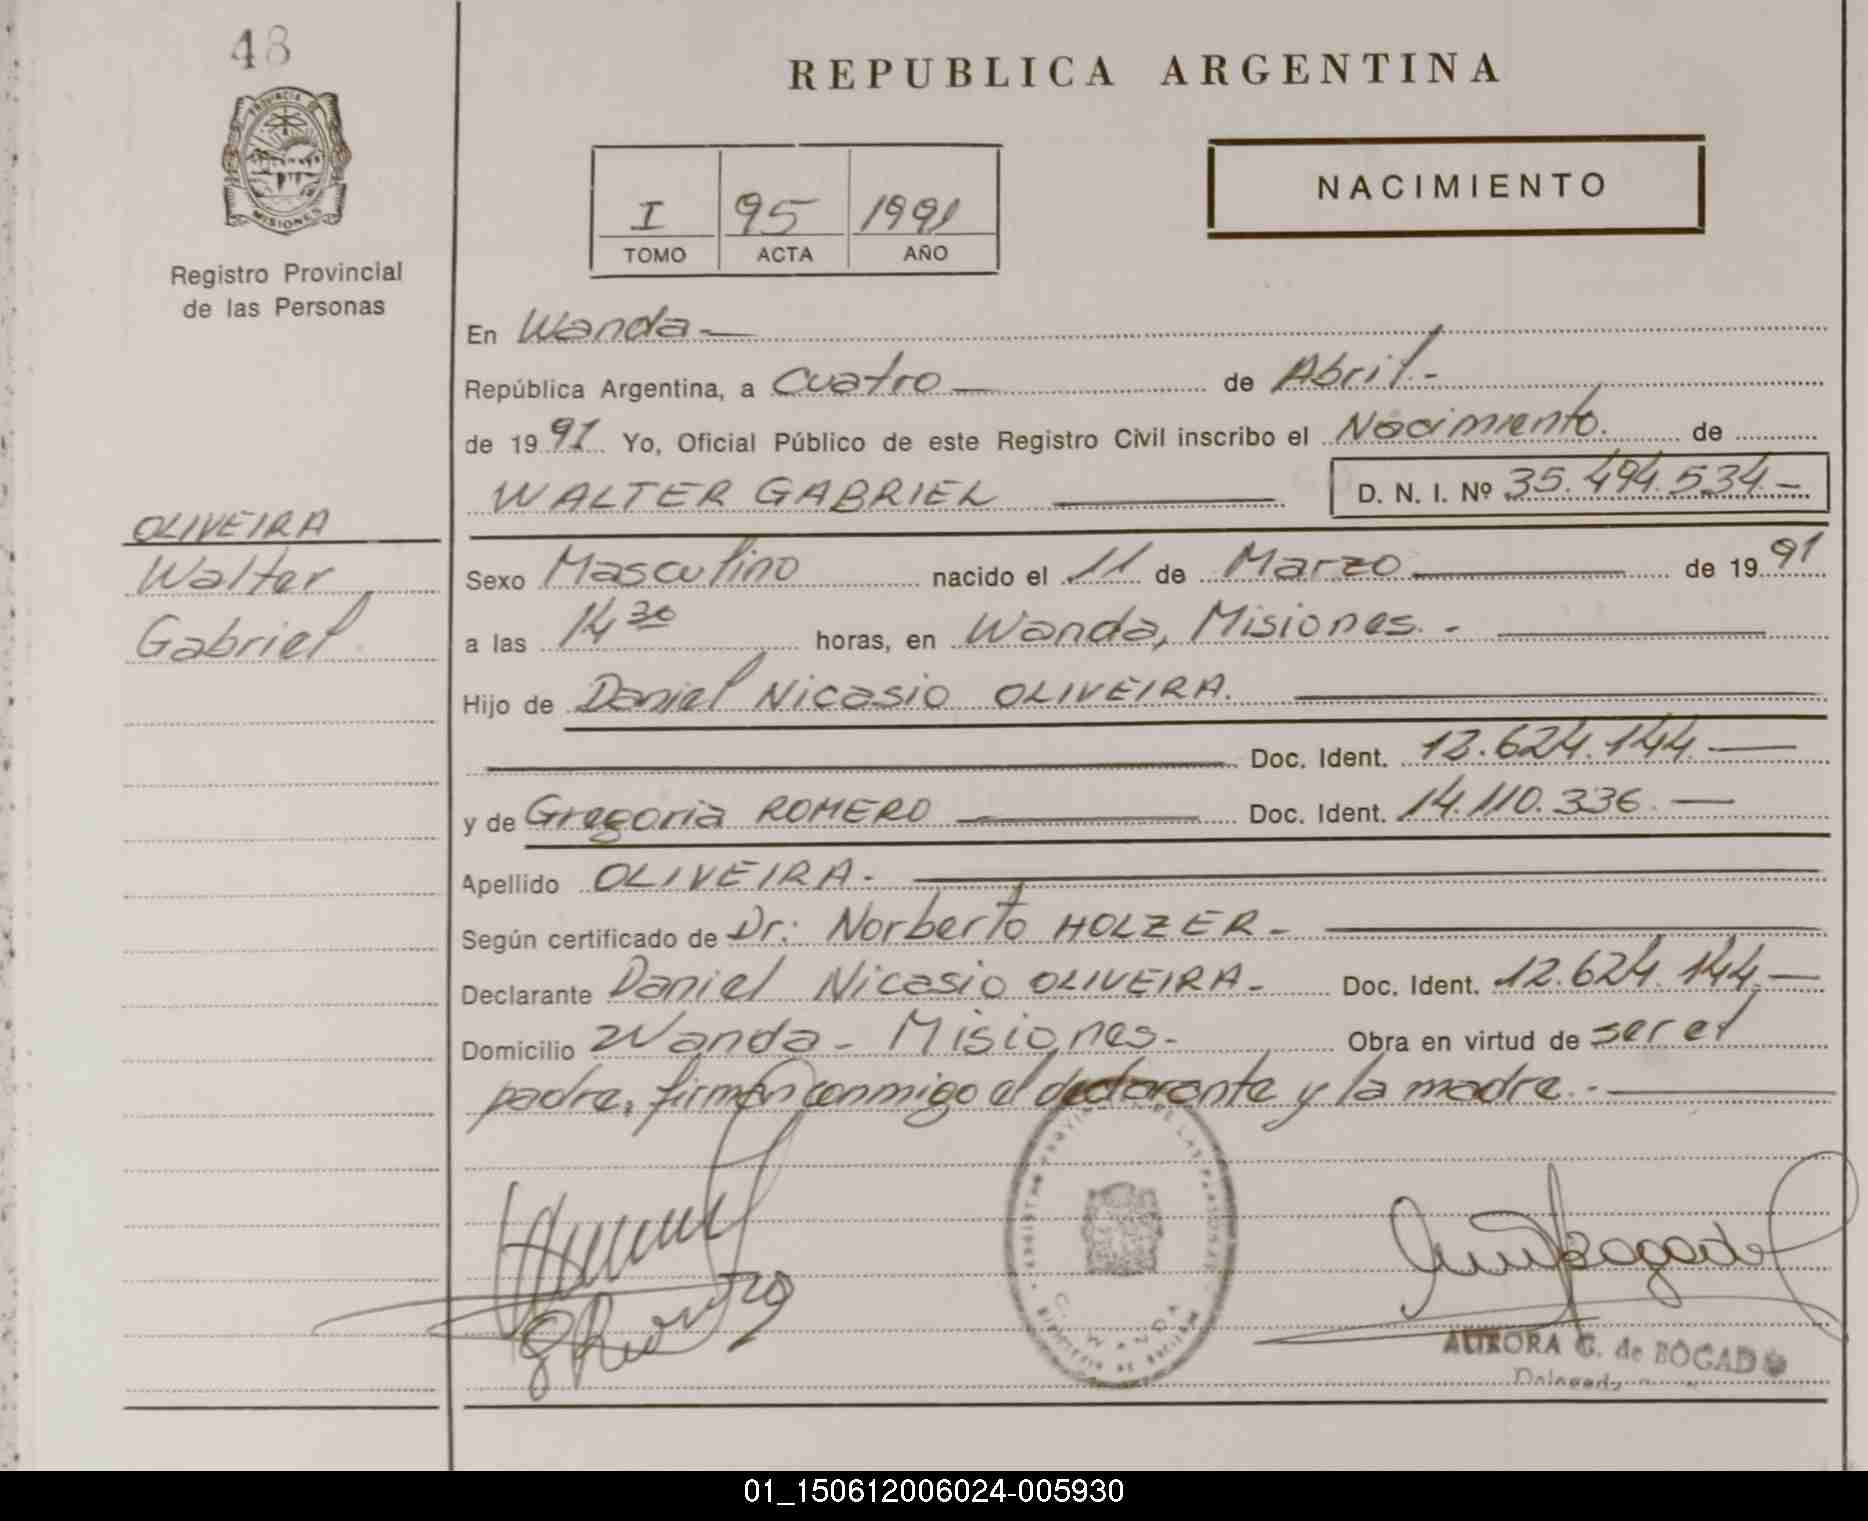 48
REPUBLICA ARGENTINA
PROVINCIA DE
MISIONES
Registro Provincial
de las Personas
I 95 1991
TOMO ACTA AÑO
NACIMIENTO
En Wanda
República Argentina, a Cuatro de Abril.-
de 1991 Yo, Oficial Público de este Registro Civil inscribo el Nacimiento. de
WALTER GABRIEL D. N. I. Nº 35.494.534.-
OLIVEIRA
Walter
Gabriel
Sexo Masculino nacido el 11 de Marzo de 1991
a las 14 30 horas, en Wanda, Misiones.-
Hijo de Daniel Nicasio OLIVEIRA.
Doc. Ident. 12.624.144.
y de Gregoria ROMERO Doc. Ident. 14.110.336.
Apellido OLIVEIRA.
Según certificado de Dr: Norberto HOLZER-
Declarante Daniel Nicasio OLIVEIRA- Doc. Ident. 12.624.144.
Domicilio Wanda - Misiones.- Obra en virtud de ser el
padre, firman conmigo el declarante y la madre.-
AURORA G. de BOGADO
01_150612006024-005930